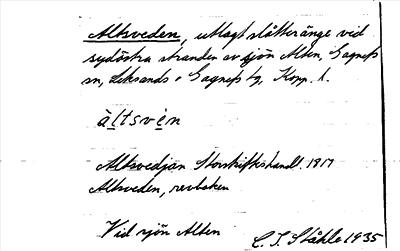 Altsveden, utlagt slåtteränge vid
sydöstra stranden av sjön Alten, Gagnefs
sn, Leksands o Gagnefs tg, Kopp. l.
àltsvèn
Altsvedjan Storskifteshandl. 1817
Altsveden, revboken
Vid sjön Alten
C. I. Ståhle 1935